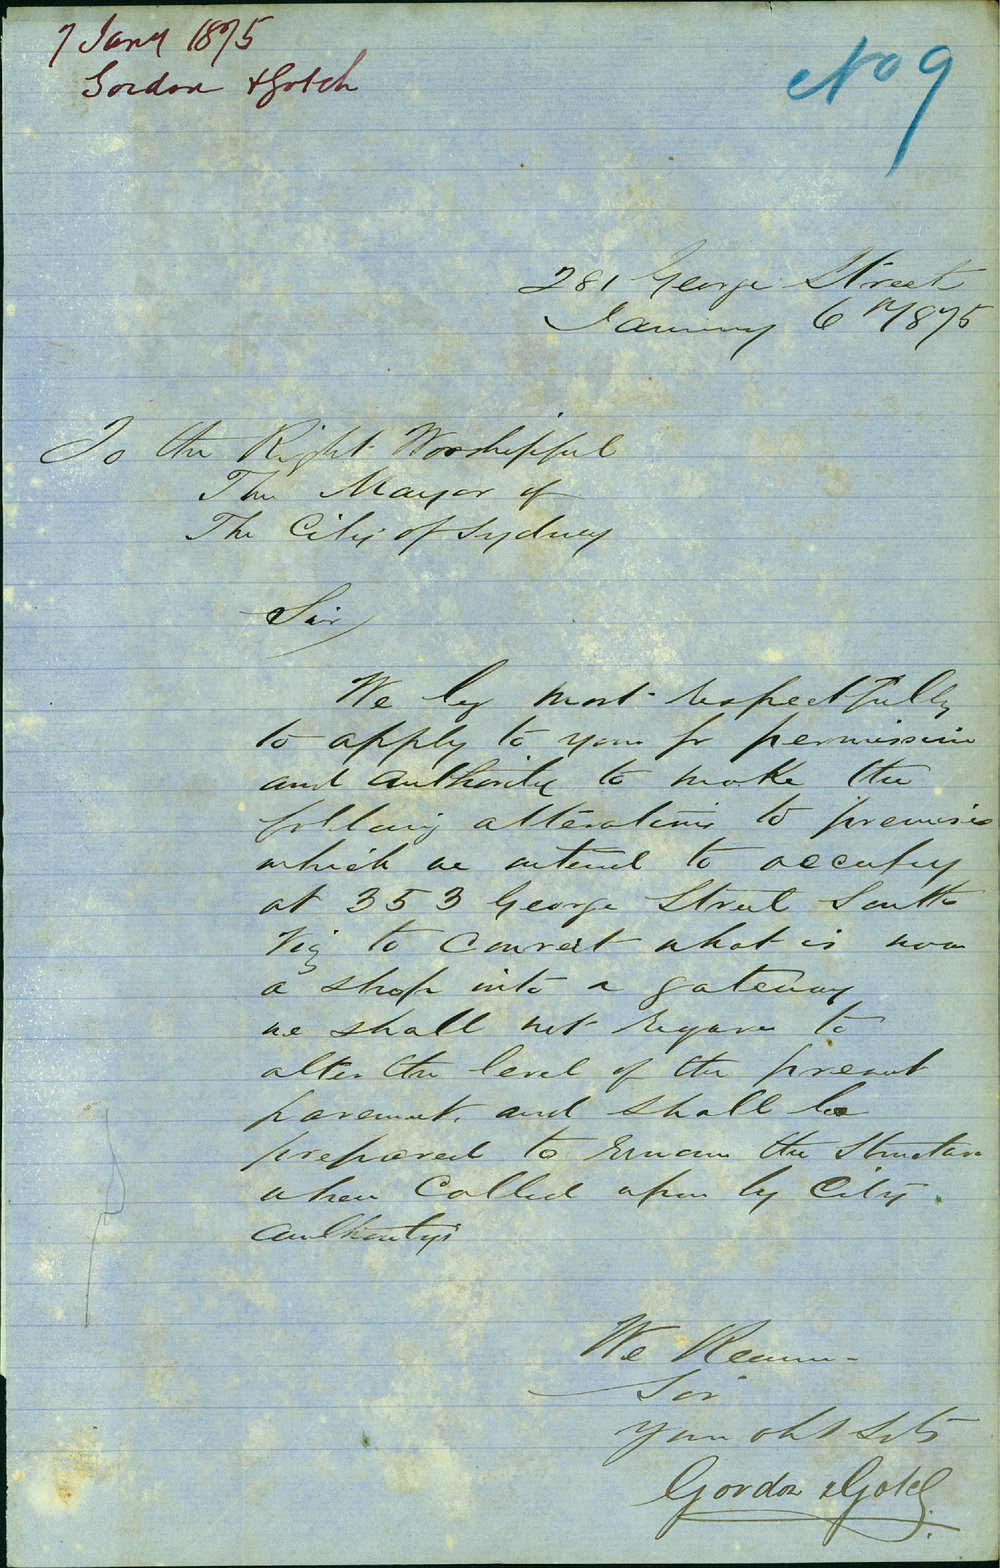 7 Jany 1875
Gordon & Gotch
No 9
281 George Street
January 6th/1875
To the Right Worshipful
The Mayor of
The City of Sydney
Sir,
We beg most respectfully
to apply to you for permission
and authority to make the
following alterations to premises
which we intend to occupy
at 353 George Street South
Viz to convert what is now
a shop into a gateway
we shall not require to
alter the level of the present
pavement, and shall be
prepared to remove the structure
when called upon by City
authoritys
We Remain
Sir
Your obt Svts
Gordon & Gotch.